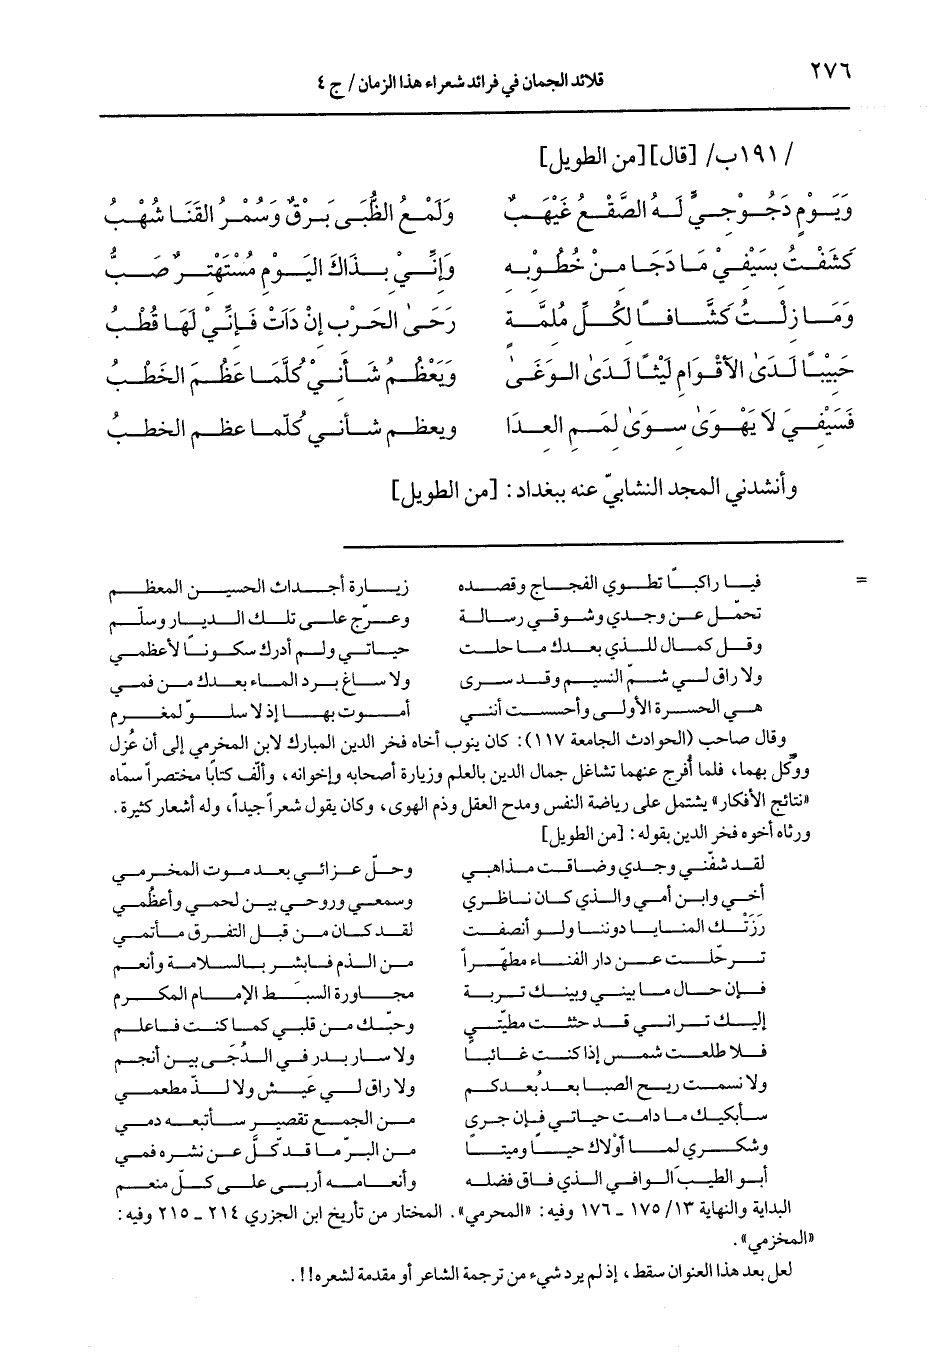 ٢٧٦
قلائد الجمان في فرائد شعراء هذا الزمان / ج ٤
/١٩١ب/ [قال] [من الطويل]
وَيَـوْمٍ دَجُـوْجِـيٍّ لَـهُ الصَّفْـعُ غَيْهَـبٌ وَلَمْـعُ الظُّبَـى بَـرْقٌ وَسُمْـرُ القَنَـا شُهْـبُ
كَشَفْـتُ بِسَيْفِـيْ مَـا دَجَـا مِـنْ خُطُـوْبِـهِ وَإِنِّـيْ بِـذَاكَ اليَـوْمِ مُسْتَهْتِـرٌ صَـبُّ
وَمَـا زِلْـتُ كَشَّـافـاً لِكُـلِّ مُلِمَّـةٍ رَحَـىٰ الحَـرْبِ إِنْ دَاتْ فَـإِنِّـيْ لَهَـا قُطْـبُ
حَبِيْبـاً لَـدَىٰ الأَقْـوَامِ لَيْثـاً لَـدَىٰ الـوَغَـىٰ وَيَعْظُـمُ شَـأْنِـيْ كُلَّمَـا عَظُـمَ الخَطْـبُ
فَسَيْفِـيَ لاَ يَهْـوَىٰ سِـوَىٰ لِمَـمِ العِـدَا ويعظـم شـأنـي كُلّمـا عظـم الخطـبُ
وأنشدني المجد النشابيّ عنه ببغداد: [من الطويل]
= فيـا راكبـاً تطـوي الفجـاج وقصـده زيـارة أجـداث الحسيـن المعظـم
تحمّـل عـن وجـدي وشـوقـي رسـالـة وعـرّج علـى تلـك الـديـار وسلّـم
وقـل كمـال للـذي بعـدك مـا حلـت حيـاتـي ولـم أدرك سكـونـاً لأعظمـي
ولا راق لـي شـمّ النسيـم وقـد سـرى ولا سـاغ بـرد المـاء بعـدك مـن فمـي
هـي الحسـرة الأولـى وأحسـت أننـي أمـوت بهـا إذ لا سلـوّ لمغـرم
وقال صاحب (الحوادث الجامعة ١١٧): كان ينوب أخاه فخر الدين المبارك لابن المخرمي إلى أن عُزل
ووُكّل بهما، فلما أُفرج عنهما تشاغل جمال الدين بالعلم وزيارة أصحابه وإخوانه، وألف كتاباً مختصراً سمّاه
«نتائج الأفكار» يشتمل على رياضة النفس ومدح العقل وذم الهوى، وكان يقول شعراً جيداً، وله أشعار كثيرة.
ورثاه أخوه فخر الدين بقوله: [من الطويل]
لقـد شفّنـي وجـدي وضـاقـت مـذاهبـي وحـلّ عـزائـي بعـد مـوت المخـرمـي
أخـي وابـن أمـي والـذي كـان نـاظـري وسمعـي وروحـي بيـن لحمـي وأعظُمـي
رزَتْـك المنـايـا دوننـا ولـو أنصفـت لقـد كـان مـن قبـل التفـرق مـأتمـي
تـرحّلـت عـن دار الفنـاء مطهّـراً مـن الـذم فـابشـر بـالسـلامـة وأنعـم
فـإن حـال مـا بينـي وبينـك تـربـة مجـاورة السبـط الإمـام المكـرم
إليـك تـرانـي قـد حثثـت مطيّتـي وحبّـك مـن قلبـي كمـا كنـت فـاعلـم
فـلا طلعـت شمـس إذا كنـت غـائبـاً ولا سـار بـدر فـي الـدُّجـى بيـن أنجـم
ولا نسمـت ريـح الصبـا بعـد بُعـدكـم ولا راق لـي عيـش ولا لـذّ مطعمـي
سـأبكيـك مـا دامـت حيـاتـي فـإن جـرى مـن الجمـع تقصيـر سـأتبعـه دمـي
وشكـري لمـا أوْلاك حيـاً وميتـاً مـن البـرّ مـا قـد كـلّ عـن نشـره فمـي
أبـو الطيـب الـوافـي الـذي فـاق فضلـه وأنعـامـه أربـى علـى كـلّ منعـم
البداية والنهاية ١٣/ ١٧٥ ـ ١٧٦ وفيه: «المحرمي». المختار من تأريخ ابن الجزري ٢١٤ ـ ٢١٥ وفيه:
«المخزمي».
لعل بعد هذا العنوان سقط، إذ لم يرد شيء من ترجمة الشاعر أو مقدمة لشعره!!.